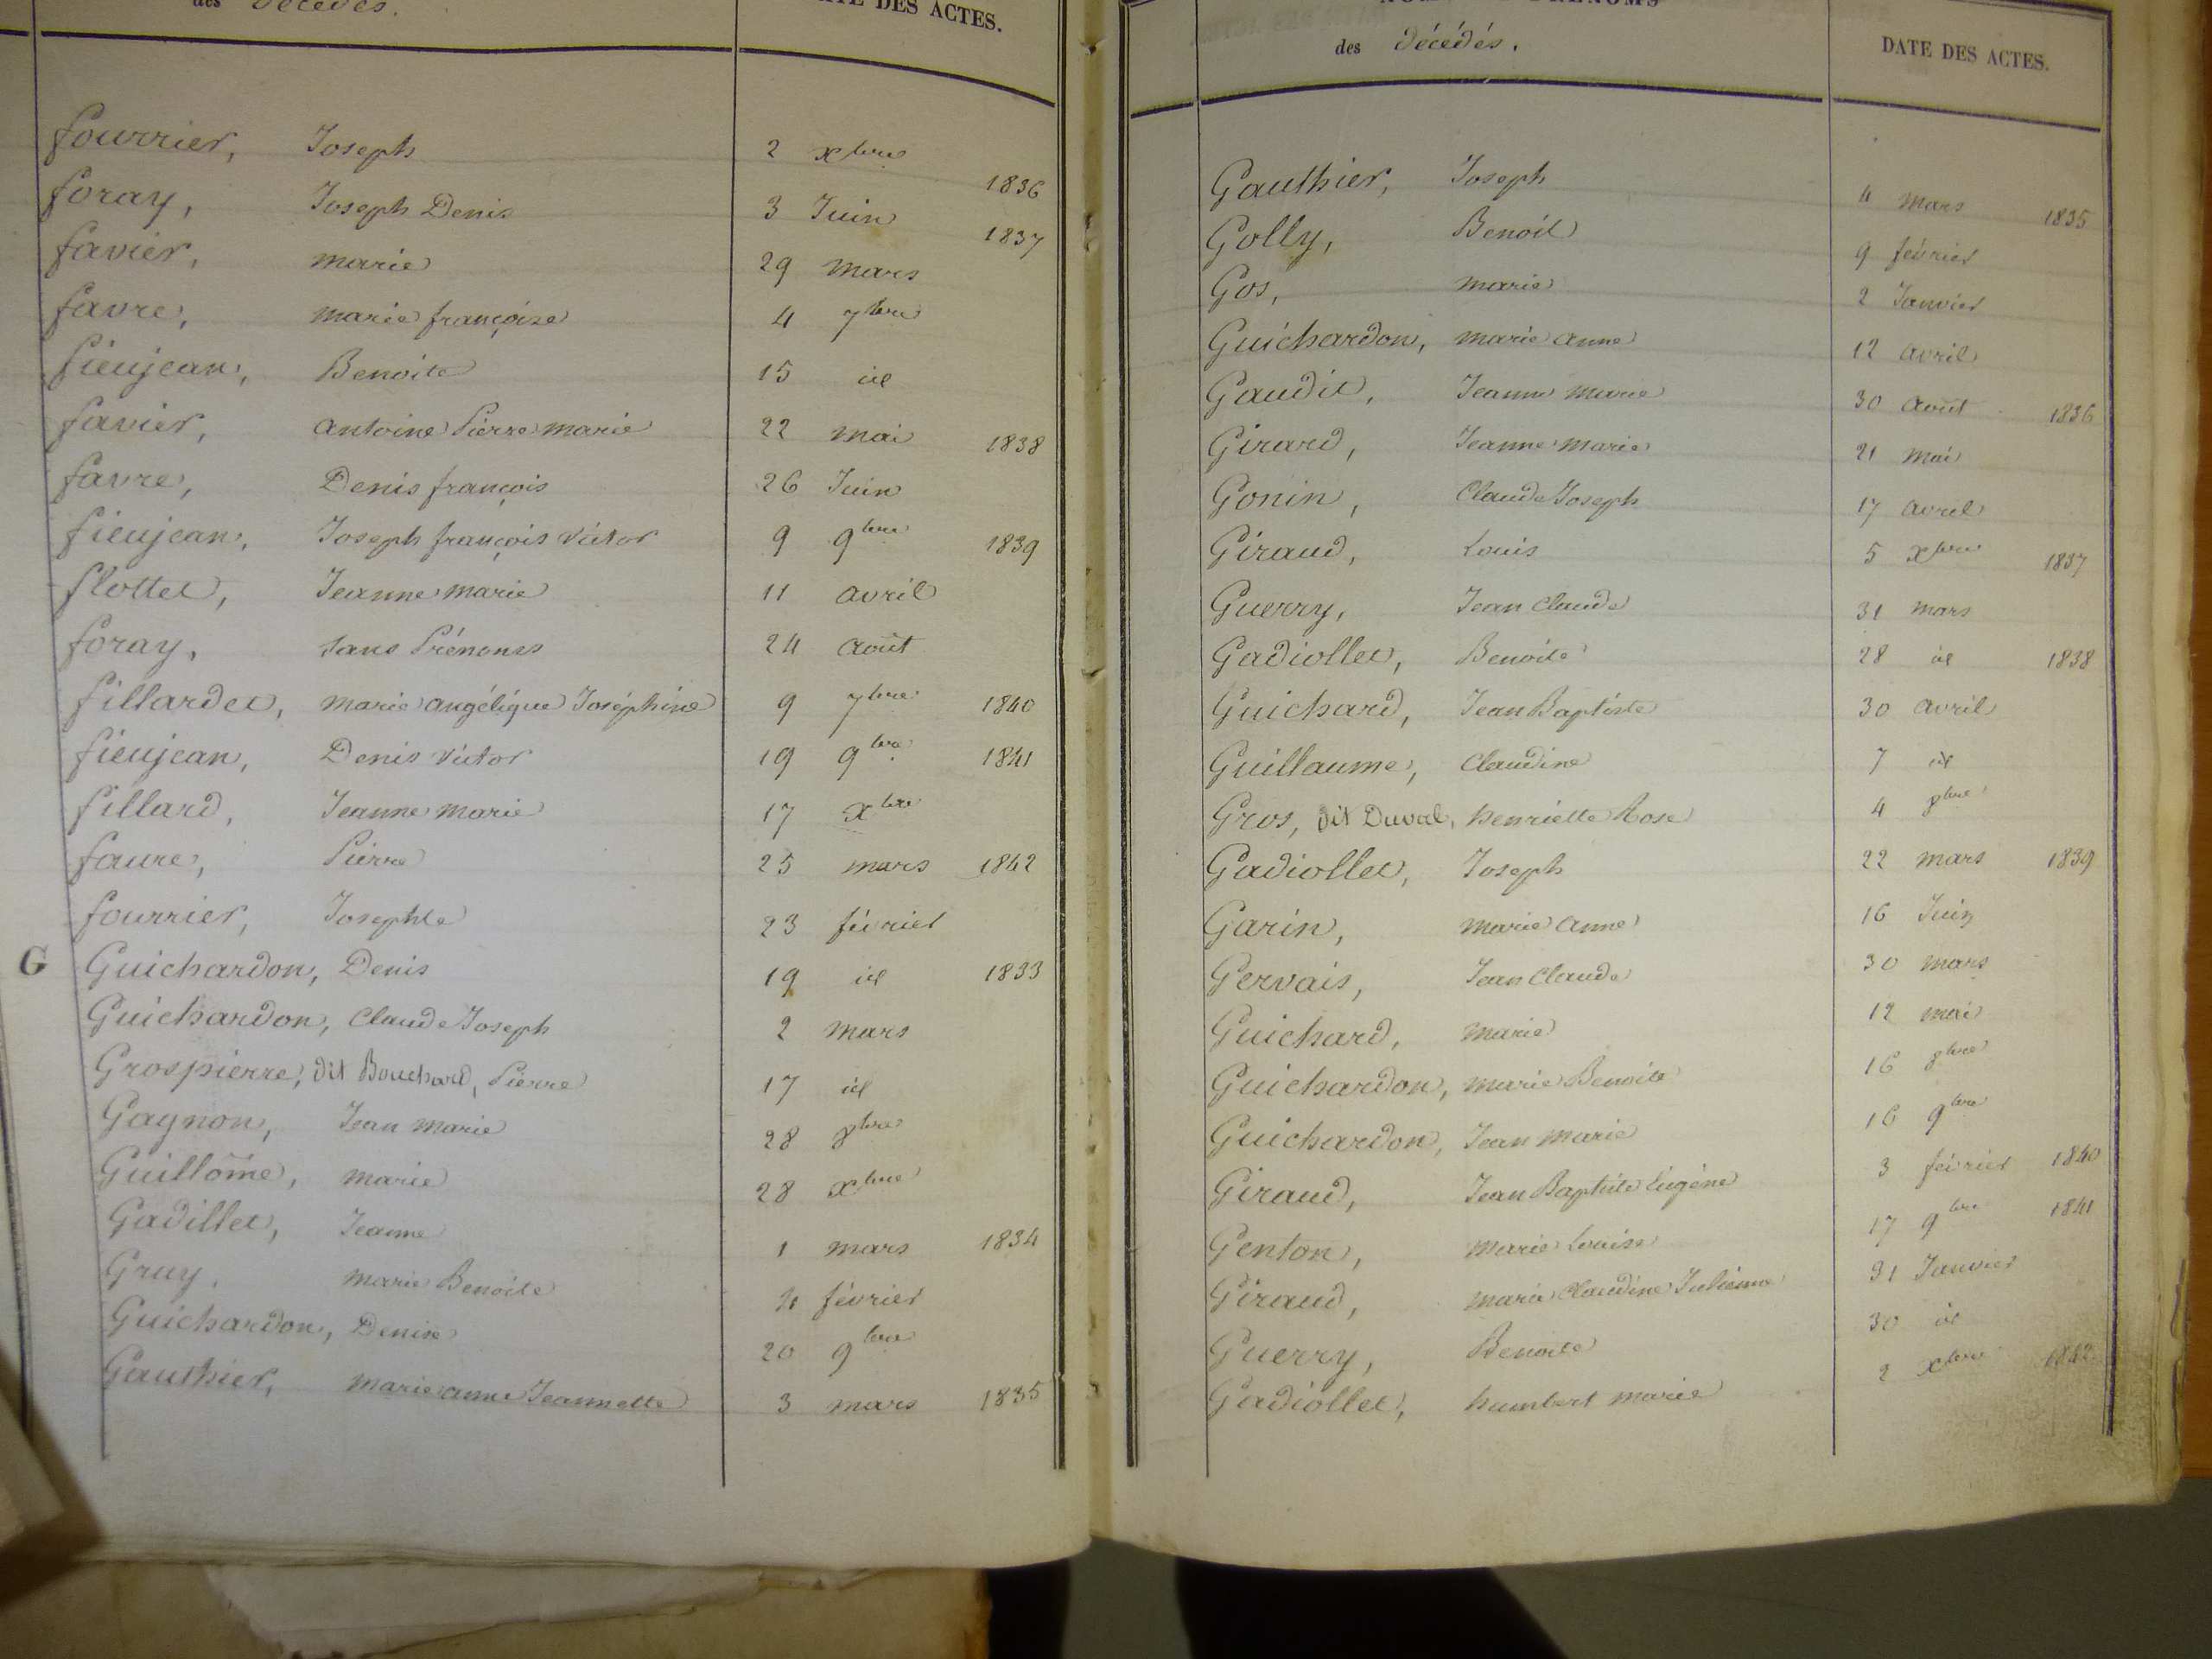 des Décédés.
DES ACTES.
fourrier, Joseph 2 xbre 1836
foray, Joseph Denis 3 Juin 1837
favier, marie 29 mars
favre, marie françoise 4 7bre
fieujean, Benoite 15 id
favier, antoine Pierre marie 22 mai 1838
favre, Denis françois 26 Juin
fieujean, Joseph françois Victor 9 9bre 1839
flottet, Jeanne marie 11 avril
foray, sans Prénoms 24 août
fillardet, marie angélique Joséphine 9 7bre 1840
fieujean, Denis Victor 19 9bre 1841
fillard, Jeanne marie 17 xbre
faure, Pierre 25 mars 1842
fourrier, Josephte 23 février
G Guichardon, Denis 19 id 1833
Guichardon, Claude Joseph 2 mars
Grospierre, dit Bouchard, Pierre 17 id
Gagnon, Jean marie 28 8bre
Guillome, marie 28 xbre
Gadillet, Jeanne 1 mars 1834
Gruy, marie Benoite 4 février
Guichardon, Denise 20 9bre
Gauthier, marie anne Jeannette 3 mars 1835
des Décédés.
DATE DES ACTES.
Gauthier, Joseph 4 mars 1835
Golly, Benoit 9 février
Gos, marie 2 Janvier
Guichardon, marie anne 12 avril
Gaudit, Jeanne marie 30 août 1836
Girard, Jeanne marie 21 mai
Gonin, Claude Joseph 17 avril
Giraud, Louis 5 xbre 1837
Guerry, Jean Claude 31 mars
Gadiollet, Benoite 28 id 1838
Guichard, Jean Baptiste 30 avril
Guillaume, Claudine 7 id
Gros, dit Duval, henriette Rose 4 8bre
Gadiollet, Joseph 22 mars 1839
Garin, marie anne 16 Juin
Gervais, Jean Claude 30 mars
Guichard, marie 12 mai
Guichardon, marie Benoite 16 8bre
Guichardon, Jean marie 16 9bre
Giraud, Jean Baptiste Eugène 3 février 1840
Genton, marie Louise 17 9bre 1841
Giraud, marie Claudine Julienne 31 Janvier
Guerry, Benoite 30 id
Gadiollet, humbert marie 2 xbre 1842